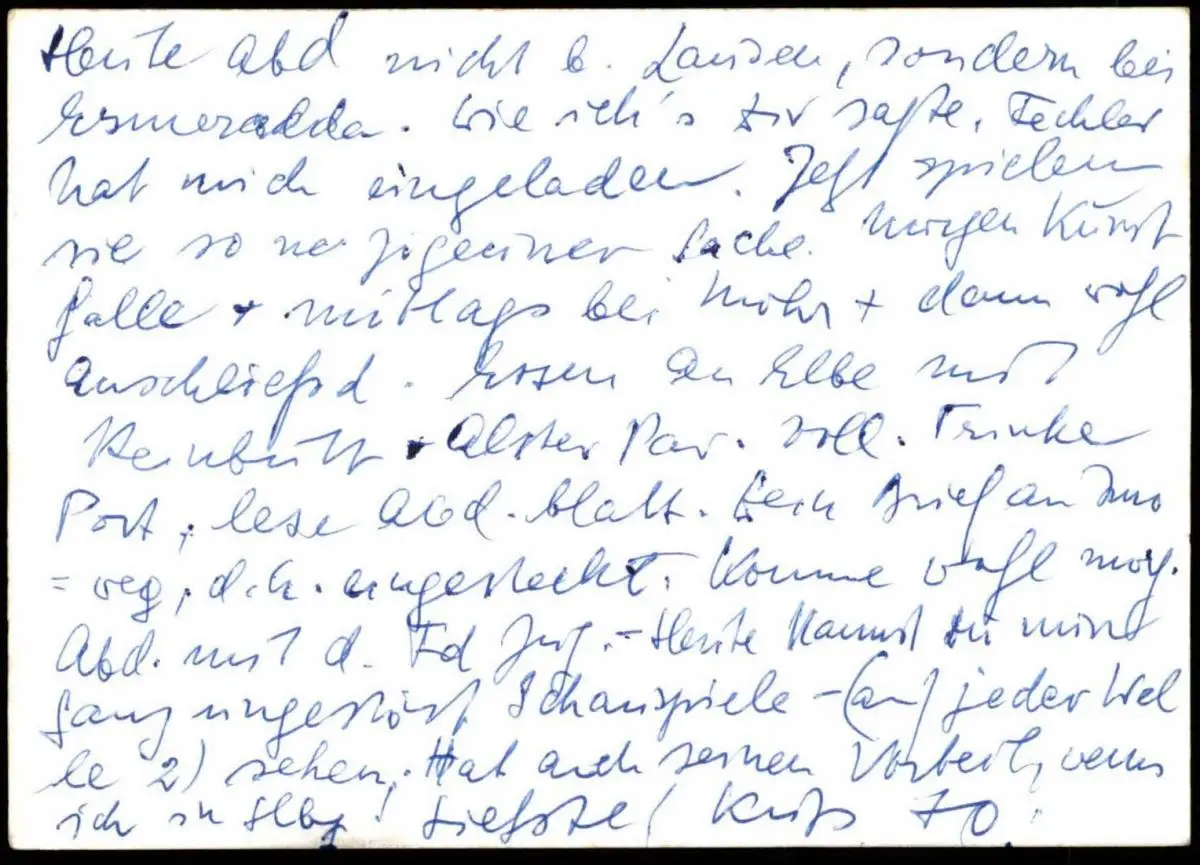 Heute Abd nicht b. Landen, sondern bei
Esmeralda. Wie ich's Dir sagte. Fechler
hat mich eingeladen. Jetzt spielen
sie so ne Zigeuner Sache. Morgen Kunst
halle + mittags bei Mohr + dann wohl
anschließd. Essen an Elbe mit
Reinbutt. Alster Pav. voll. Trinke
Port, lese Abd.blatt. Dein Brief an
= weg, d.h. eingesteckt. Komme wohl morg.
Abd. mit d. Zug. - Heute kannst Du mind
ganz ungestört Schauspiele - (auf jeder Wel
le 2) sehen. Hat auch seinen Vorteil, wenn
ich in Hbg! Liebste! Kuß